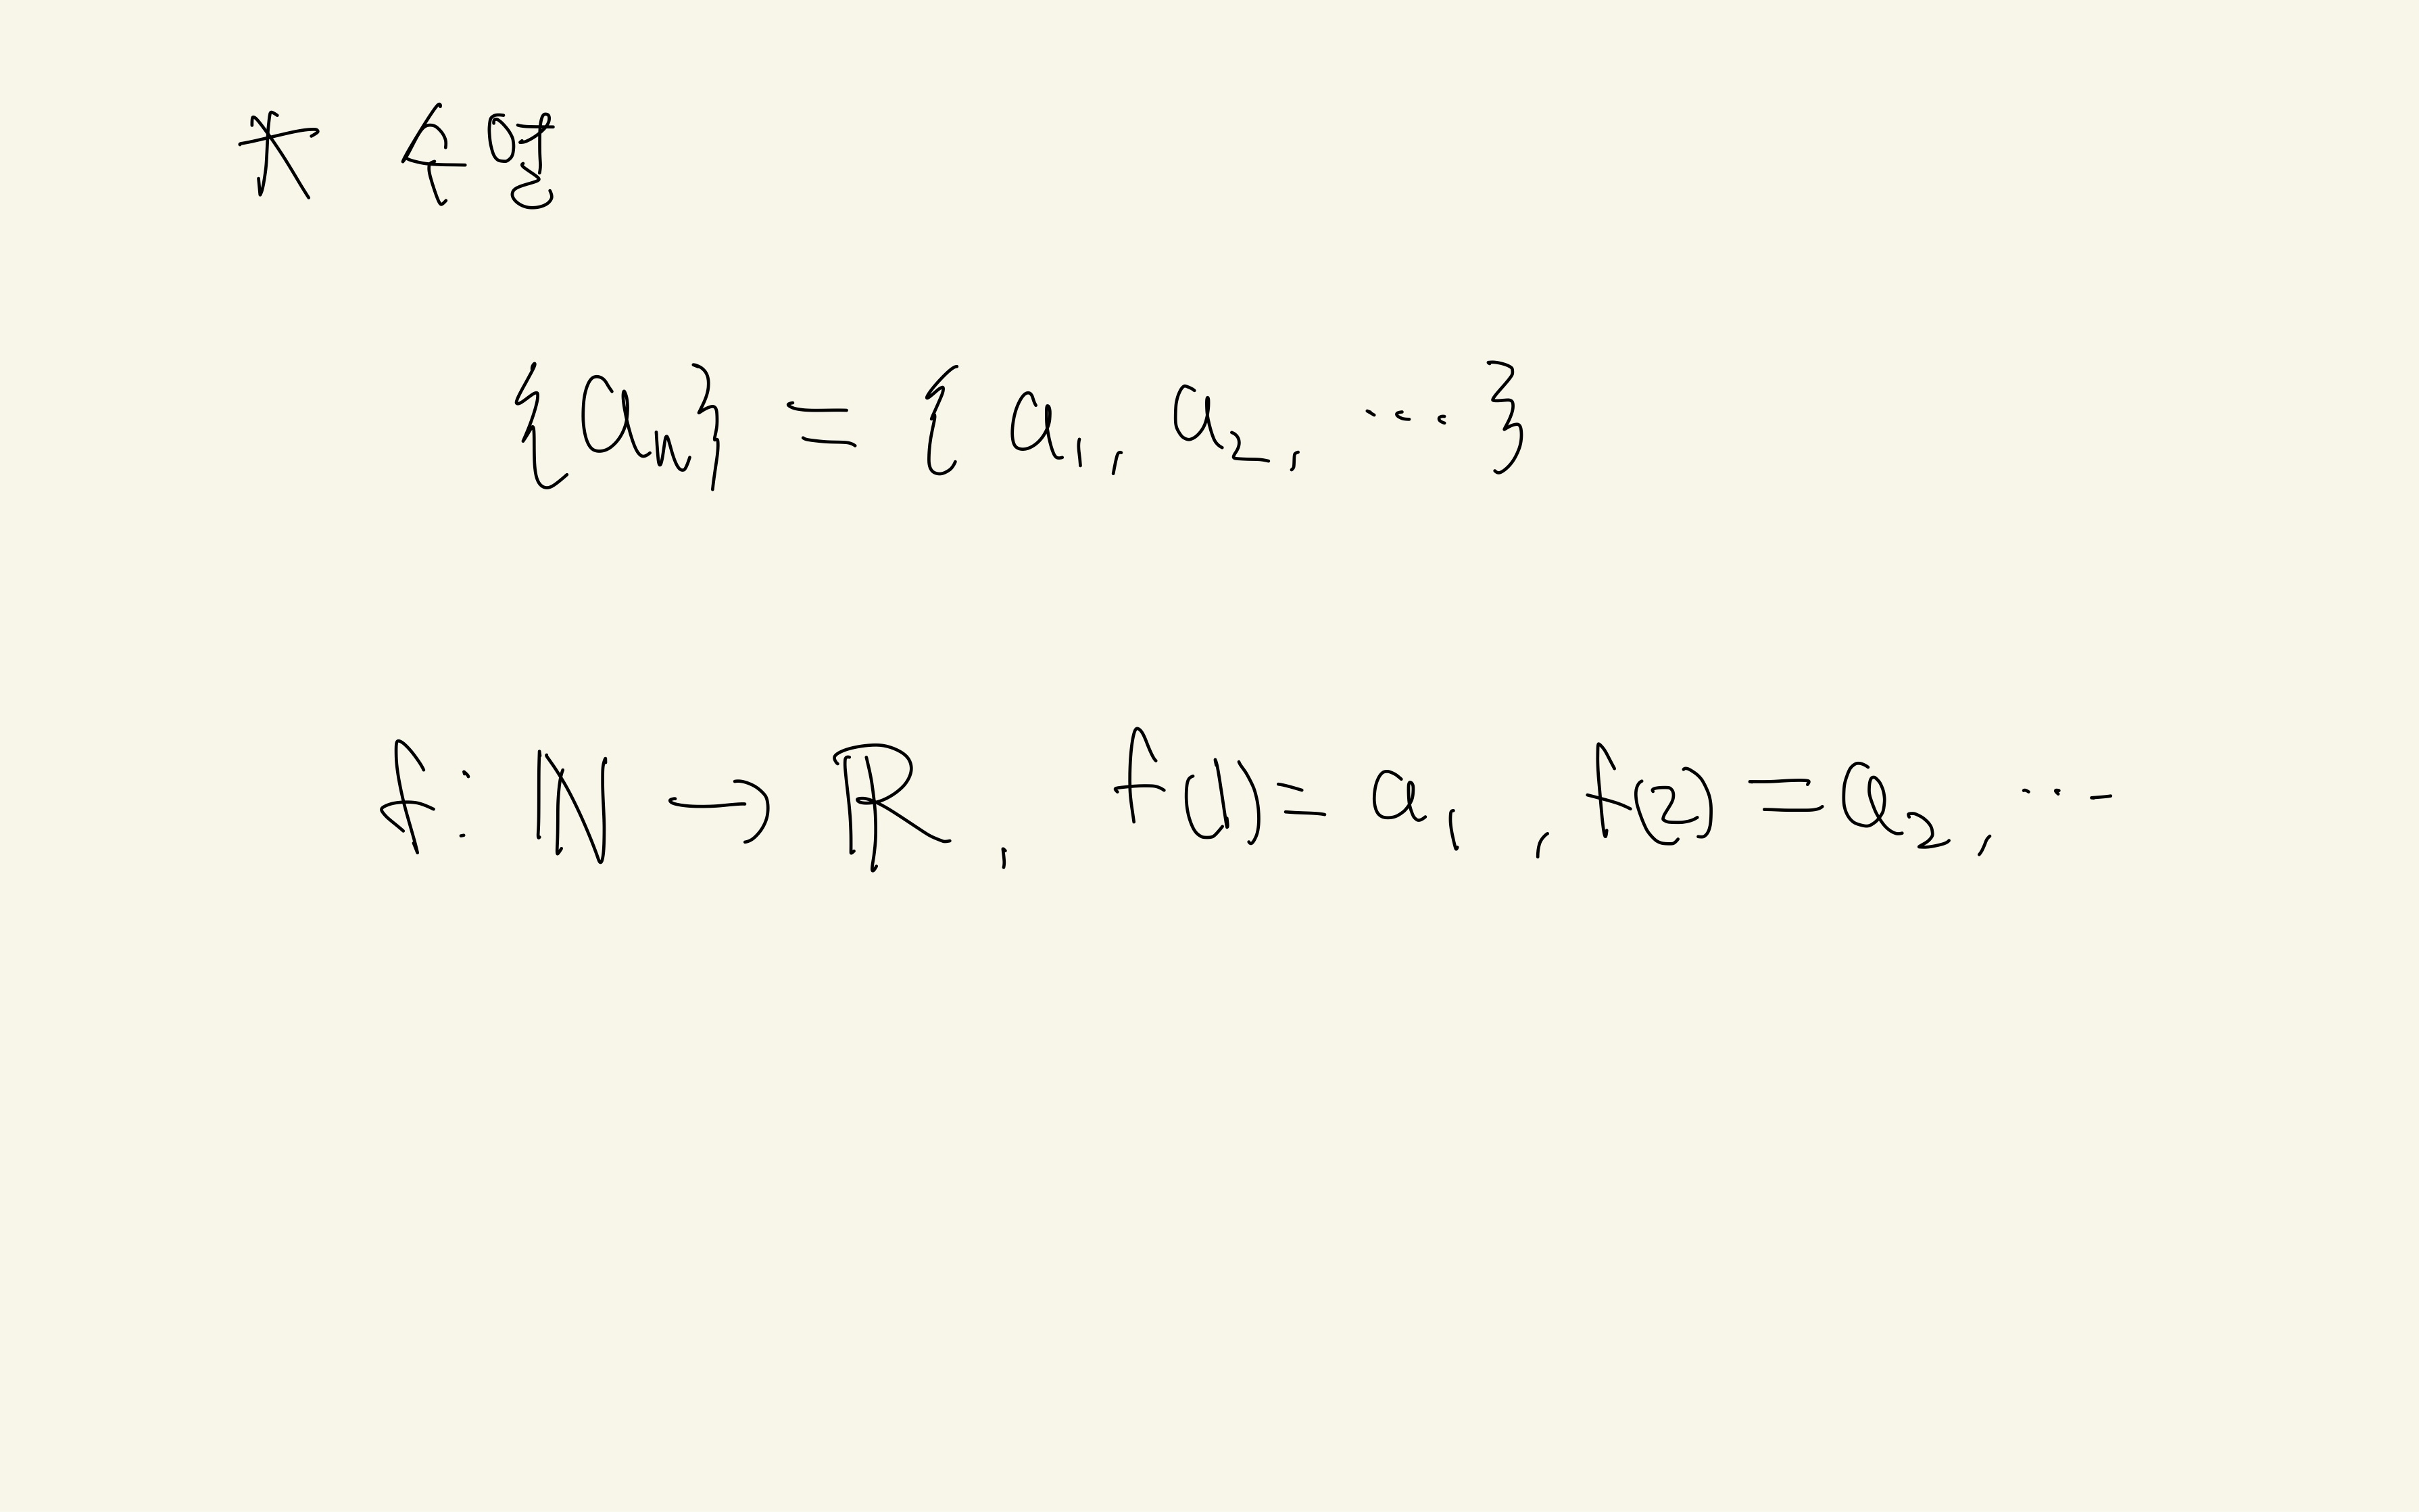 * 수열
{aₙ} = { a₁, a₂, ⋯ }
f : ℕ → ℝ , f(1) = a₁ , f(2) = a₂, ⋯